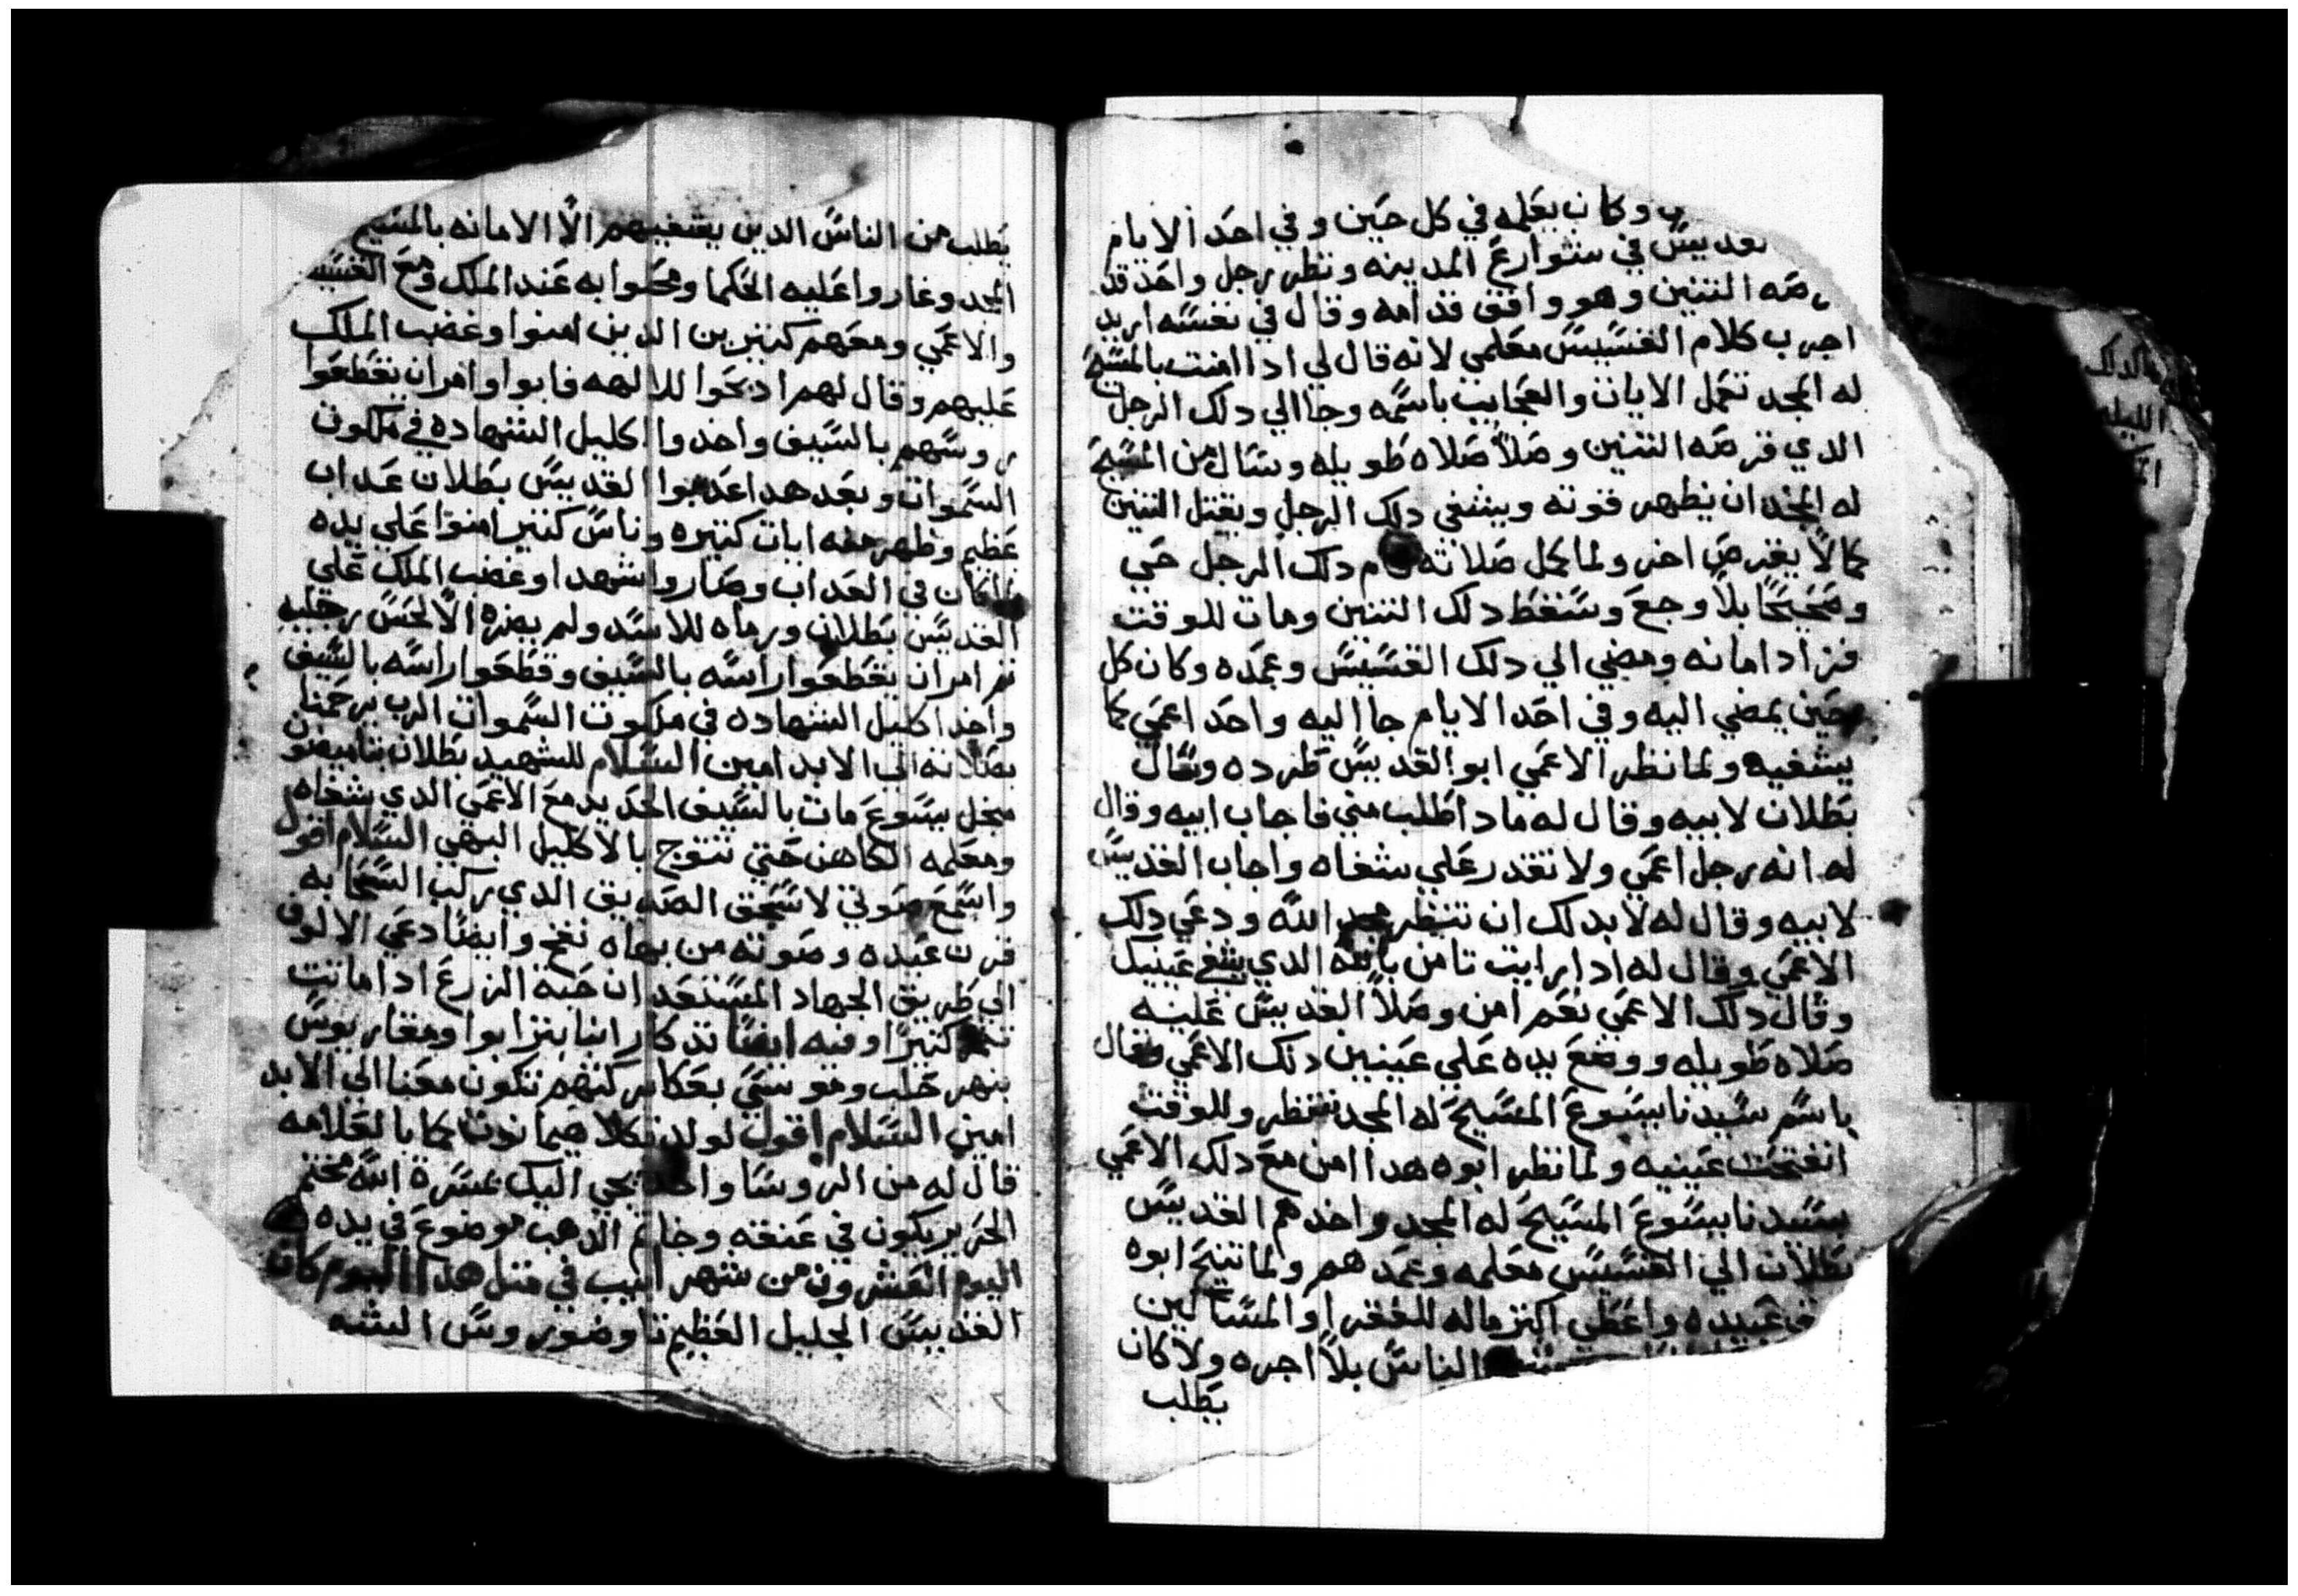 وكان يعلمه في كل حين وفي احد الايام
القديس في شوارع المدينه ونظر رجل واحد قد
التنين وهو واقف قدامه وقال في نفسه اريد
اجرب كلام القسيس معلمي لانه قال لي ادا امنت بالمسيح
له المجد تعمل الايات والعجايب باسمه وجا الي دلك الرجل
الدي قرصه التنين وصلا صلاه طويله وسال من المسيح
له المجد ان يظهر قوته ويشفي دلك الرجل ويقتل التنين
كما لا يقرص اخر ولما كمل صلاته قام دلك الرجل حي
وصحيحا بلا وجع وسقط دلك التنين ومات للوقت
فزاد امانه ومضي الي دلك القسيس وعمده وكان كل
حين يمضي اليه وفي احد الايام جا اليه واحد اعمي كما
يشفيه ولما نظر الاعمي ابو القديس طرده وسال
بطلان لابيه وقال له مادا طلب مني فاجاب ابيه وقال
له انه رجل اعمي ولا تقدر علي شفاه واجاب القديس
لابيه وقال له لابد لك ان تنظر مجد الله ودعي دلك
الاعمي وقال له ادا رايت تامن بالله الدي يشفي عينيك
وقال دلك الاعمي نعم امن وصلا القديس عليه
صلاه طويله ووضع يده علي عينين دلك الاعمي وقال
باسم سيدنا يسوع المسيح له المجد تنظر وللوقت
انفتحت عينيه ولما نظر ابوه هدا امن مع دلك الاعمي
بسيدنا يسوع المسيح له المجد واخدهم القديس
بطلان الي القسيس معلمه وعمدهم ولما تنيح ابوه
عبيده واعطي اكتر ماله للفقرا والمساكين
الناس بلا اجره ولا كان
يطلب
يطلب من الناس الدين يشفيهم الا الامانه بالمسيح
المجد وغاروا عليه الحكما ومحلوا به عند الملك ومع القسيس
والاعمي ومعهم كتيرين الدين امنوا وغضب الملك
عليهم وقال لهم ادبحوا للالهه فابوا وامر ان يقطعوا
روسهم بالسيف واخدوا اكليل الشهاده في ملكوت
السموات وبعد هدا عدبوا القديس بطلان عداب
عظيم وظهر منه ايات كتيره وناس كتير امنوا علي يده
لما كان في العداب وصاروا شهدا وغضب الملك علي
القديس بطلان ورماه للاسد ولم يضره الا لحس رجليه
تم امر ان يقطعوا راسه بالسيف وقطعوا راسه بالسيف
واخد اكليل الشهاده في ملكوت السموات الرب يرحمنا
بصلاته الي الابد امين السلام للشهيد بطلان
يسوع مات بالسيف الحديد مع الاعمي الدي شفاه
ومعلمه الكاهن حتي تتوج بالاكليل البهي السلام اقول
واسمع صوتي لاسحق الصديق الدي ركب السحابه
عبده وصوته من بهاه نفخ وايضا دعي الالوف
الي طريق الجهاد المستعد ان حبة الزرع ادا ماتت
كتيرا وفيه ايضا تدكار
بنهر حلب وهو تكون معنا الي الابد
امين السلام اقول لولد تكلا هيمانوت كما بالعلامه
قال له من الروسا واحد يجي اليك بمسرة الله مختم
الحرير يكون في عنقه وخاتم الدهب موضوع في يده
اليوم العشرون من شهر ابيب في متل هدا اليوم كان
القديس الجليل العظيم تاوضوروس الشه